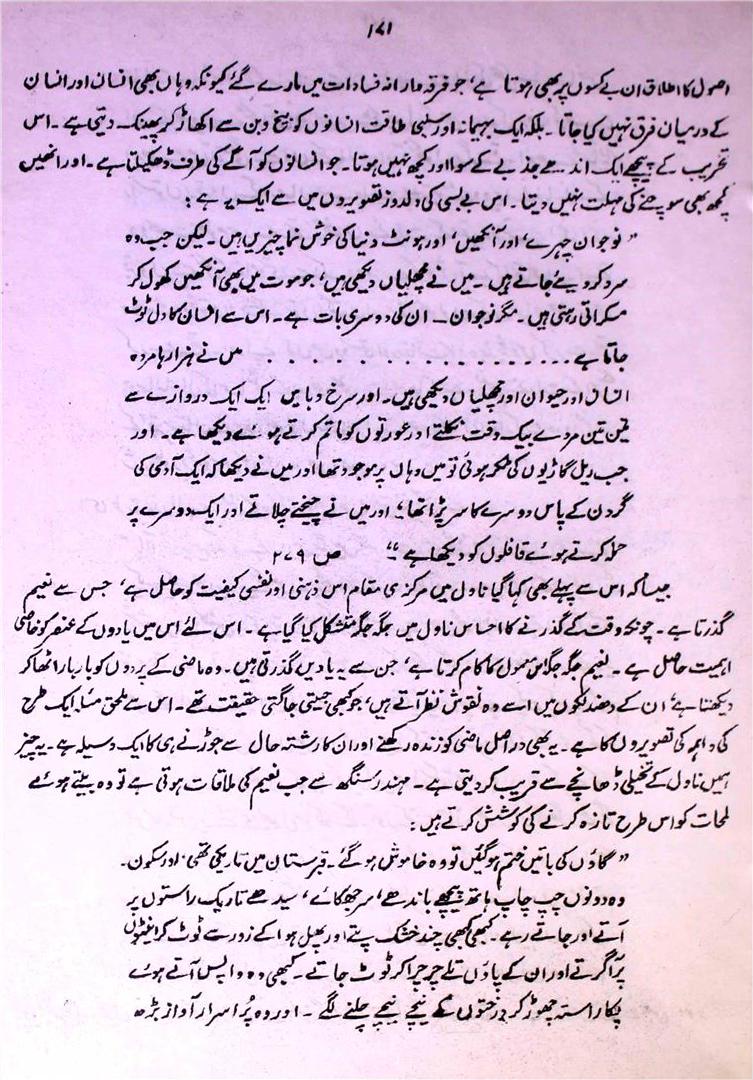 ۱۷۱
اصول کا اطلاق ان بے کسوں پر بھی ہوتا ہے، جو فرقہ وارانہ فسادات میں مارے گئے کیونکہ وہاں بھی انسان اور انسان
کے درمیان فرق نہیں کیا جاتا۔ بلکہ ایک بہیمانہ اور سلبی طاقت انسانوں کو بیخ و بن سے اکھاڑ کر پھینک دیتی ہے۔ اس
تخریب کے پیچھے ایک اندھے جذبے کے سوا اور کچھ نہیں ہوتا۔ جو انسانوں کو آگے کی طرف ڈھکیلتا ہے۔ اور انھیں
کچھ بھی سوچنے کی مہلت نہیں دیتا۔ اس بے بسی کی دلدوز تصویروں میں سے ایک یہ ہے:
” نوجوان چہرے، اور آنکھیں، اور ہونٹ دنیا کی خوش نما چیزیں ہیں۔ لیکن جب وہ
سرد کر دیئے جاتے ہیں۔ میں نے مچھلیاں دیکھی ہیں، جو موت میں بھی آنکھیں کھول کر
مسکراتی رہتی ہیں۔ مگر نوجوان ــ ان کی دوسری بات ہے۔ اس سے انسان کا دل ٹوٹ
جاتا ہے . . . . . . . . . . . . . . . . میں نے ہزارہا مردہ
انسان اور حیوان اور مچھلیاں دیکھی ہیں۔ اور سرخ وبا میں ایک ایک دروازے سے
تین تین مردے بیک وقت نکلتے اور عورتوں کو ماتم کرتے ہوئے دیکھا ہے۔ اور
جب ریل گاڑیوں کی ٹکر ہوئی تو میں وہاں پر موجود تھا اور میں نے دیکھا کہ ایک آدمی کی
گردن کے پاس دوسرے کا سر پڑا تھا؛ اور میں نے چیختے چلاتے اور ایک دوسرے پر
حملہ کرتے ہوئے قافلوں کو دیکھا ہے “ ص ۲۷۹
جیسا کہ اس سے پہلے بھی کہا گیا ناول میں مرکزی مقام اس ذہنی اور نفسی کیفیت کو حاصل ہے، جس سے نعیم
گذرتا ہے۔ چونکہ وقت کے گذرنے کا احساس ناول میں جگہ جگہ متشکل کیا گیا ہے۔ اس لئے اس میں یادوں کے عنصر کو خاصی
اہمیت حاصل ہے۔ نعیم جگہ جگہ اس معمول کا کام کرتا ہے، جن سے یہ یادیں گذرتی ہیں۔ وہ ماضی کے پردوں کو بار بار اٹھا کر
دیکھتا ہے، ان کے دھندلکوں میں اسے وہ نقوش نظر آتے ہیں، جو کبھی جیتی جاگتی حقیقت تھے۔ اس سے ملحق مسئلہ ایک طرح
کی واہمہ کی تصویروں کا ہے۔ یہ بھی دراصل ماضی کو زندہ رکھنے اور ان کا رشتہ حال سے جوڑنے ہی کا ایک وسیلہ ہے۔ یہ چیز
ہمیں ناول کے تخیلی ڈھانچے سے قریب کر دیتی ہے۔ مہندر سنگھ سے جب نعیم کی ملاقات ہوتی ہے تو وہ بیتے ہوئے
لمحات کو اس طرح تازہ کرنے کی کوشش کرتے ہیں:
” گاؤں کی باتیں ختم ہو گئیں تو وہ خاموش ہو گئے۔ قبرستان میں تاریکی تھی اور سکون۔
وہ دونوں چپ چاپ ہاتھ پیچھے باندھے، سر جھکائے، سیدھے تاریک راستوں پر
آتے اور جاتے رہے۔ کبھی کبھی چند خشک پتے اور پھل ہوا کے زور سے ٹوٹ کر اینٹوں
پر آ گرتے اور ان کے پاؤں تلے چرچرا کر ٹوٹ جاتے۔ کبھی وہ واپس آتے ہوئے
پکا راستہ چھوڑ کر درختوں کے نیچے نیچے چلنے لگے۔ اور وہ پُر اسرار آواز بڑھ